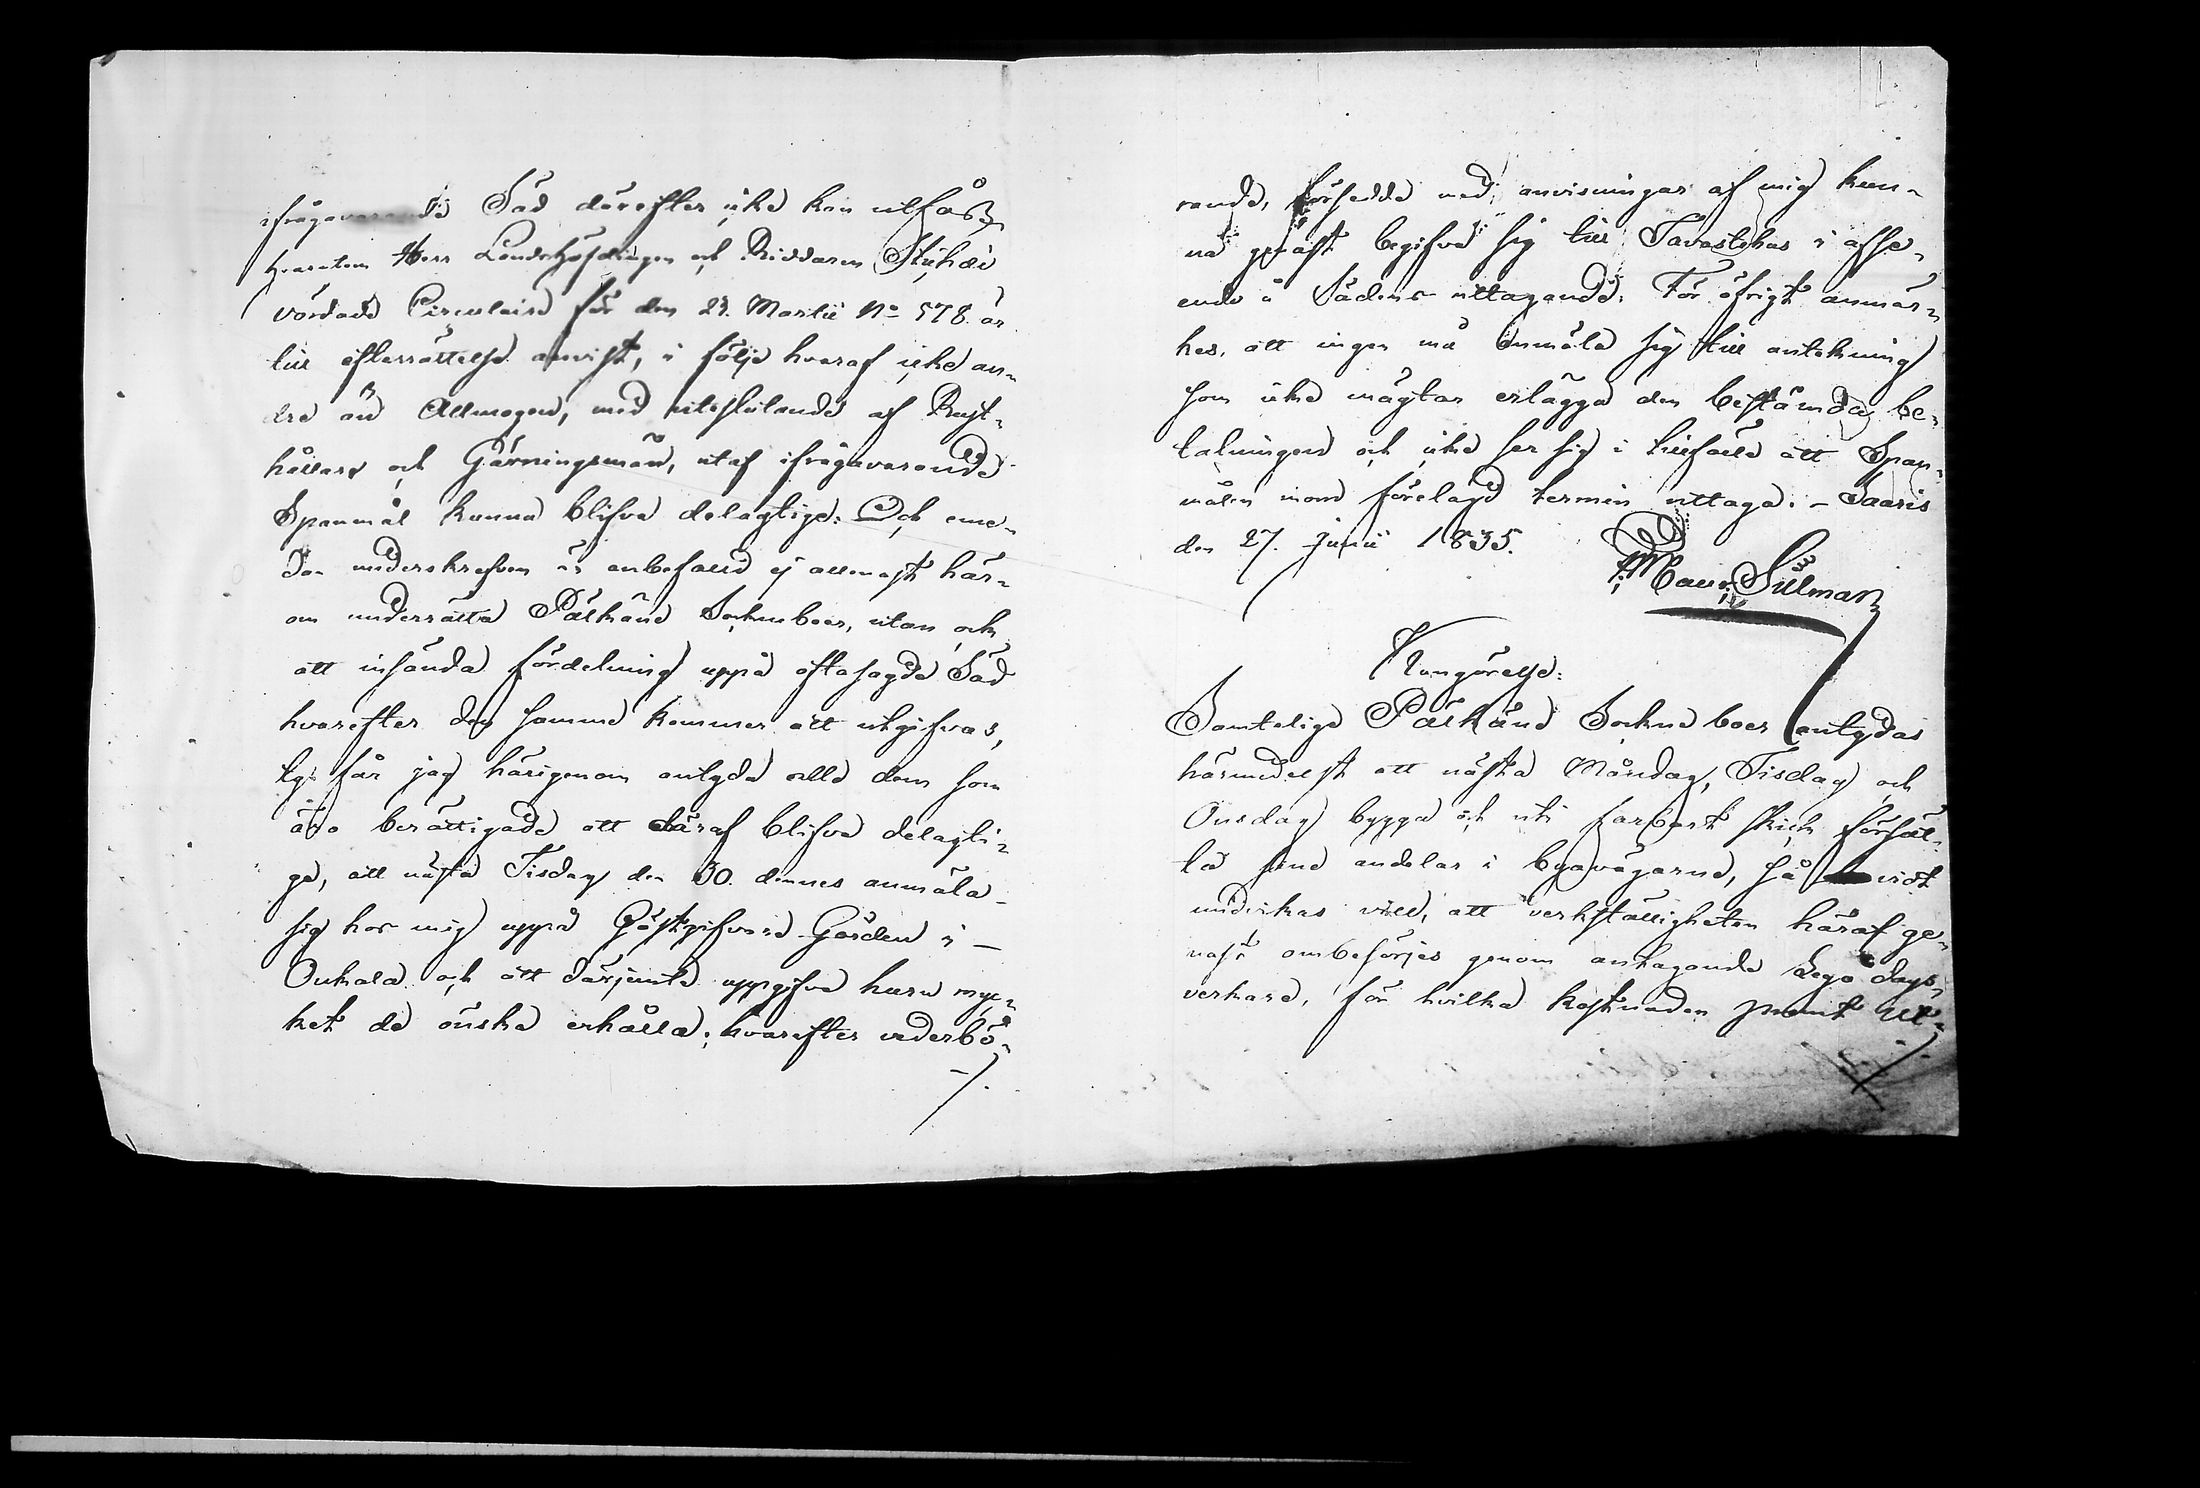 ifrågavarande Säd därefter icke kan utfås,
hvarutom Herr Landshöfdingen och Riddaren
vördade Circulaire för den 23. Martii No 578. är
till efterrättelse anvist, i följe hvaraf icke an-
dre än Allmogen, med uteslutande af Rust-
hållare och Gärningsmän, utaf ifrågavarande
Spanmål kunna blifva delagtige. Och eme-
dan underskrefven är anbefalld ej allenast här-
om underrätta Pälkäne Sockneboer, utan och
att insända fördelning uppå oftasagde Säd
hvarefter den samme kommer att utgifvas,
ty får jag härigenom antyda alla dem som
äro berättigade att däraf blifva delagti-
ge, att nästa Tisdag den 30. dennes anmäla
sig hos mig uppå Gästgifveri Gården i
Onkala och att därjemte uppgifva huru myc-
ket de önska erhålla; hvarefter vederbö-
-/.
rande, försedde med anvisningar af mig kun-
na genast begifva sig till Tavastehus i afse-
ende å Sädens uttagande. För öfrigt anmär-
kes, att ingen må anmäla sig till antekning
som icke mägtar erlägga den bestämda be-
talningen och icke ser sig i tillfälle att Span-
målen inom förelagd termin uttaga. - Saaris
den 27. Junii 1835.
Maur. Sillman
Kungörelse.
Samtelige Pälkäne Sockne boer antydas
härmedelst att nästa Måndag, Tisdag och
Onsdag bygga och uti farbart skick försät-
ta sine andelar i byavägarne, så vidt
undvikas vill, att verkställigheten häraf ge-
nast ombesörjes genom antagande Lego dags-
verkare, för hvilka kostnaden promt ut-
/.